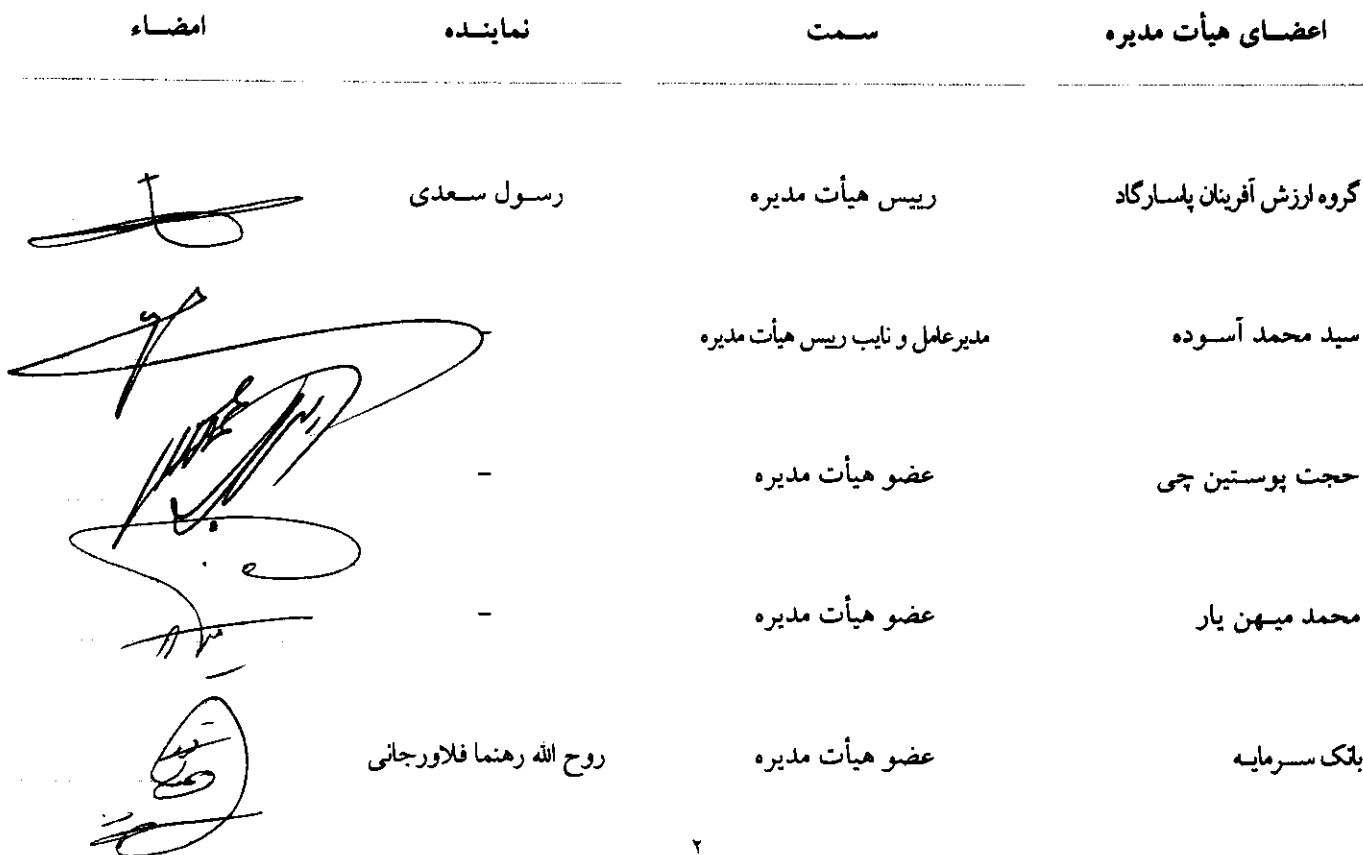 اعضـای هیأت مدیره سـمت نماینـده امضـاء
گروه ارزش آفرینان پاسـارگاد رییس هیأت مدیره رسـول سـعدی
سید محمد آسـوده مدیرعامل و نایب رییس هیأت مدیره -
حجت پوسـتین چی عضو هیأت مدیره -
محمد میـهن یار عضو هیأت مدیره -
بانک سـرمایـه عضو هیأت مدیره روح الله رهنما فلاورجانی
۲